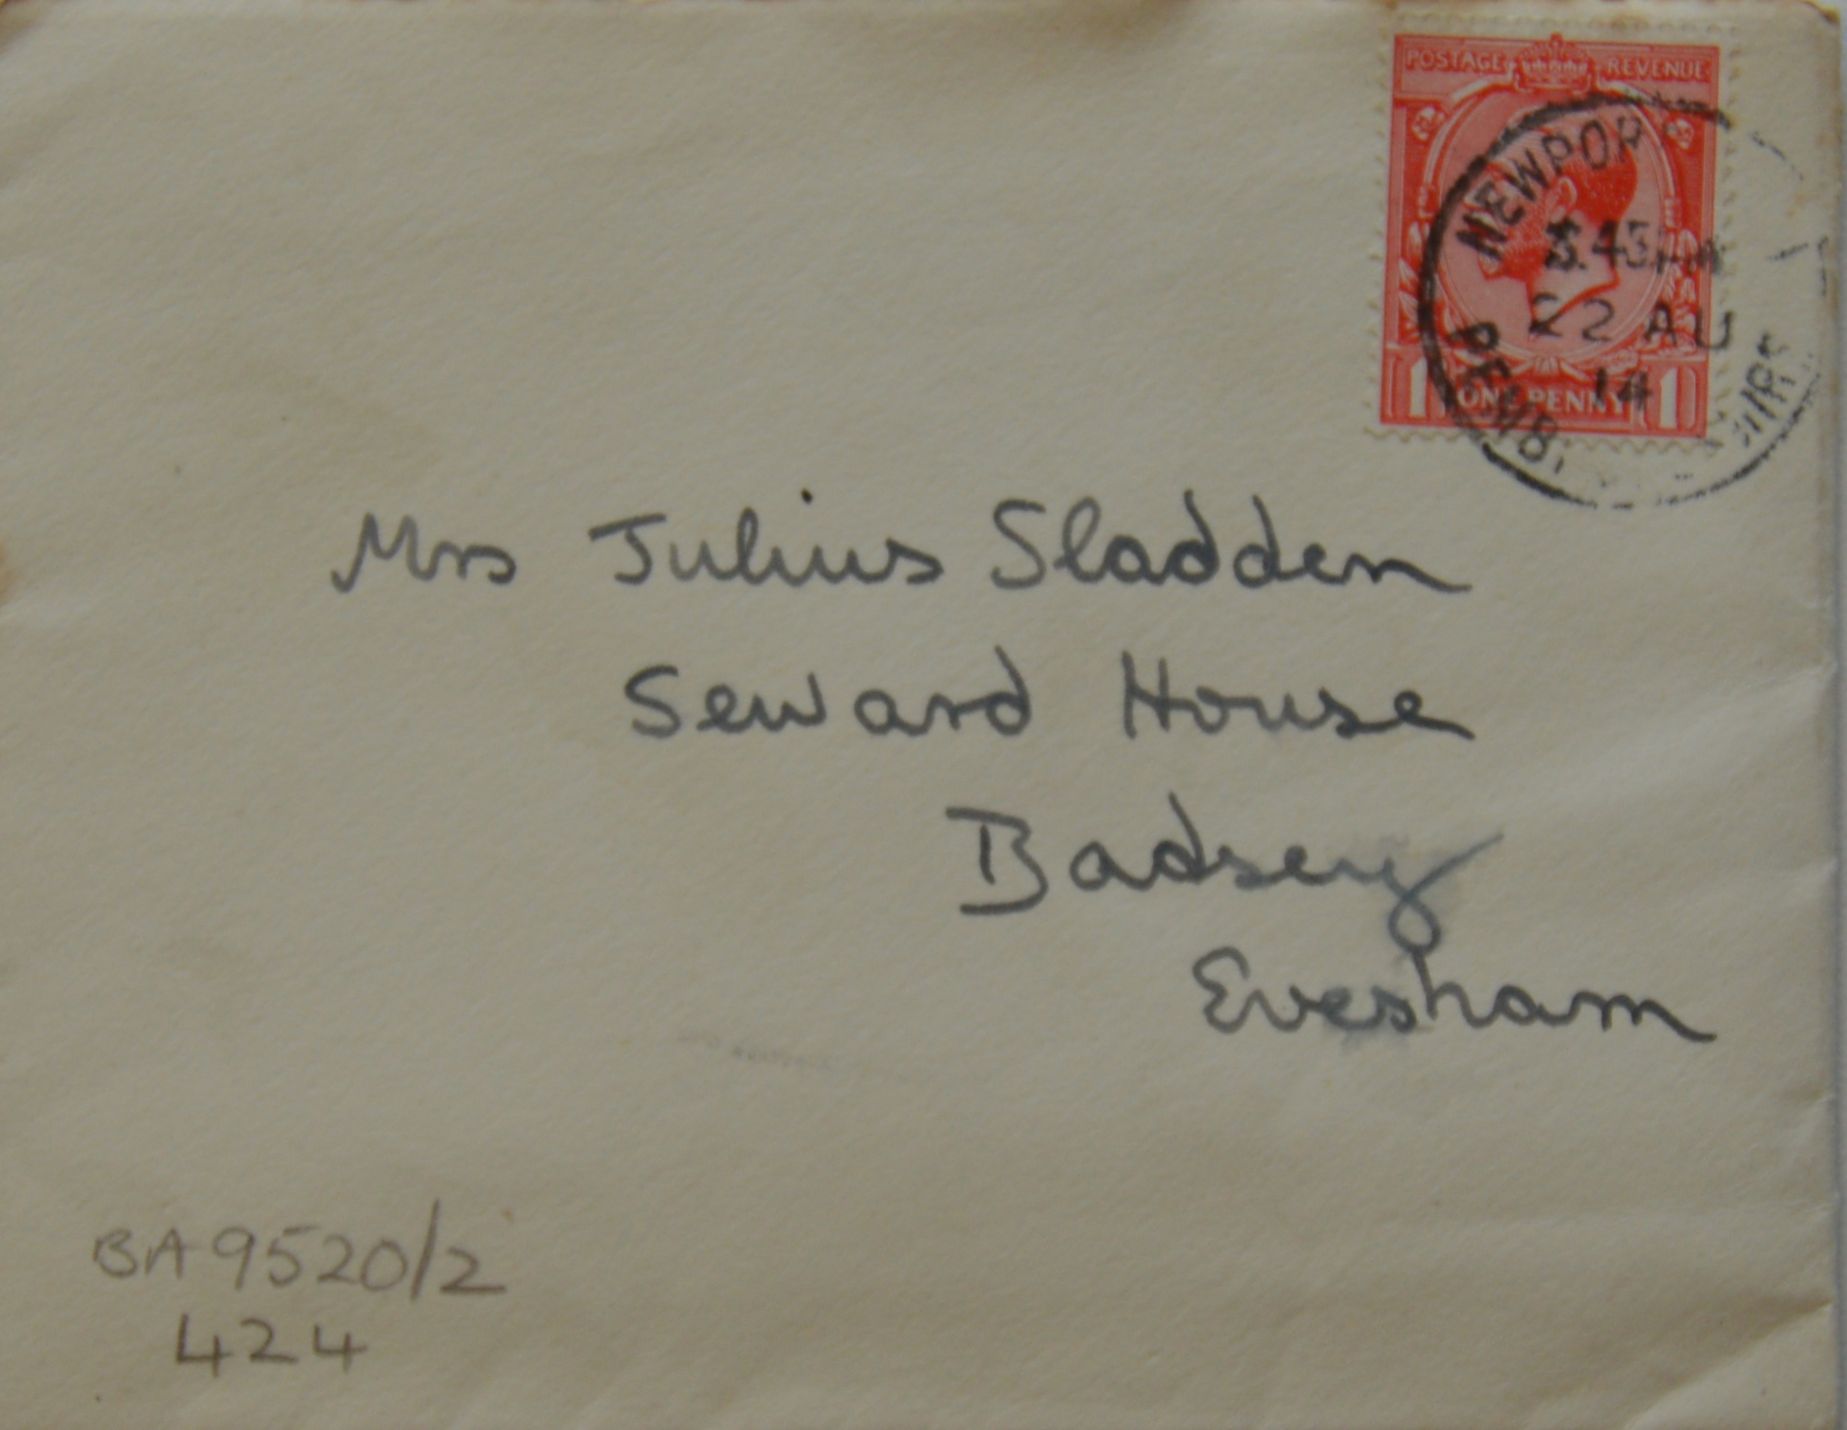 POSTAGE REVENUE
NEWPOR
22 AU
14
PEMB
1 ONE PENNY 1
Mrs Julius Sladden
Seward House
Badsey
Evesham
BA9520/2
424